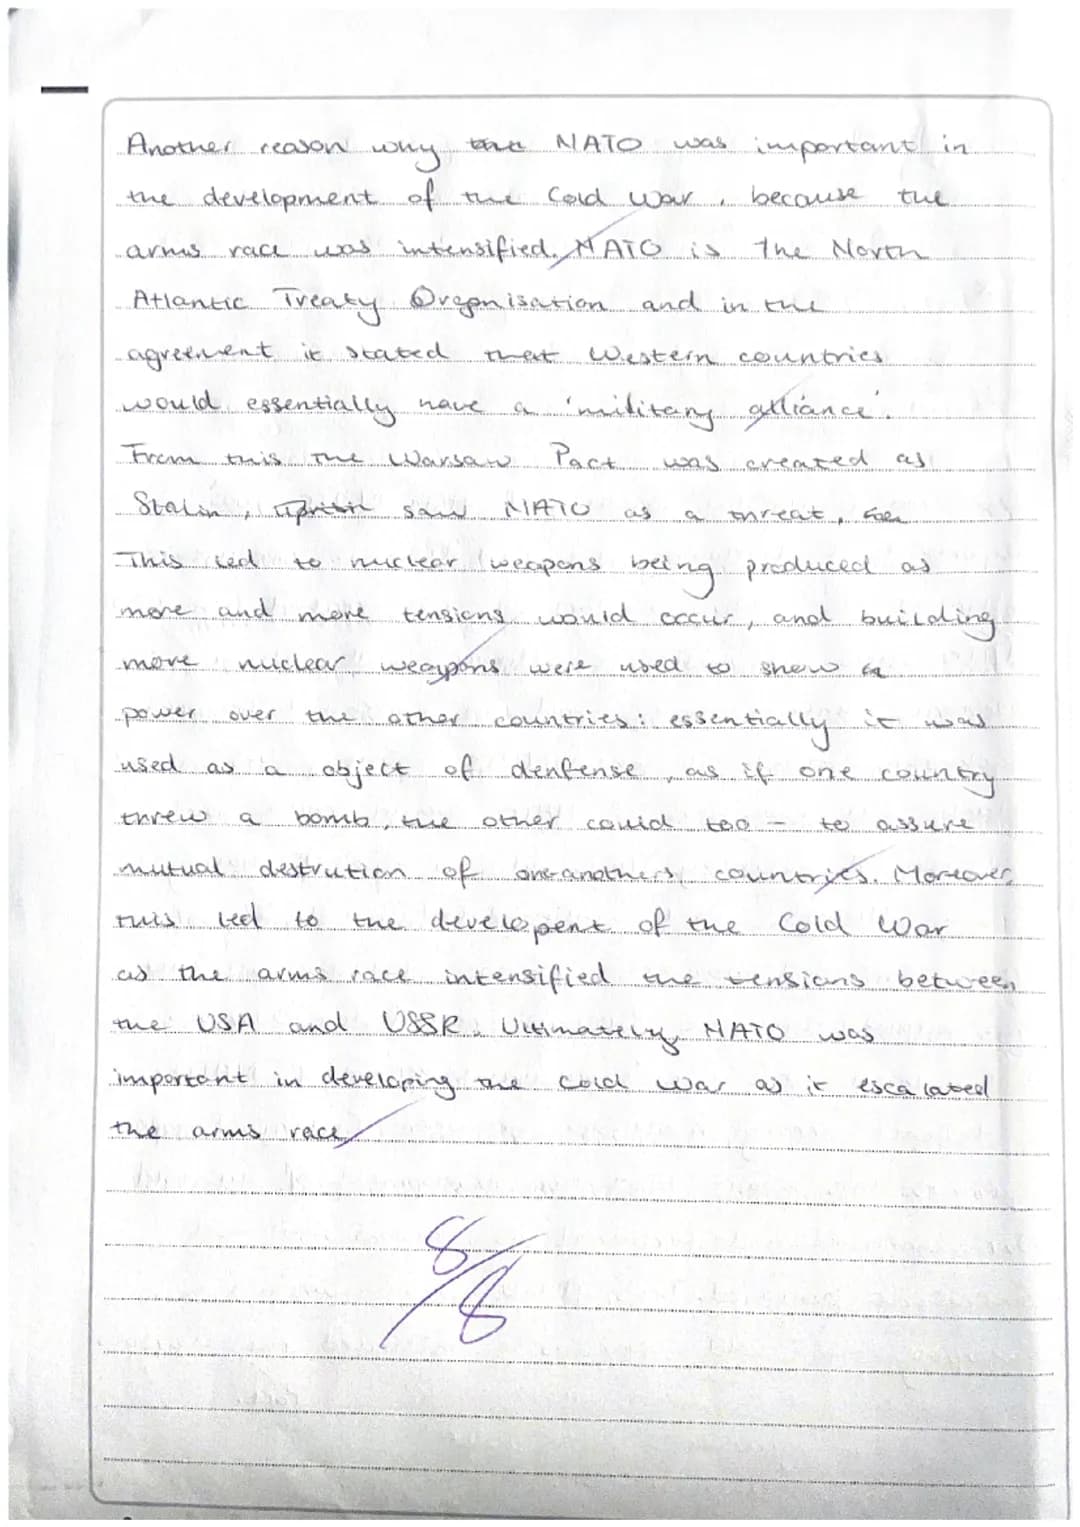 Another reason why NATO was important in
the development of the Cold War, because the
arms race was intensified. NATO is The North
Atlantic Treaty Orgonisation and in the
agreement it stated that Western countries
would essentially have a 'military alliance'.
From this the Warsaw Pact was created as
Stalin, saw NATO as a threat,
This led to nuclear weapons being produced as
more and more tensions would occur, and building
more nuclear weapons were used to show
power over the other countries: essentially it was
used as a object of denfense, as if one country
threw a bomb, the other could too - to assure
mutual destrution of one anothers countries. Moreover,
this led to the develepent of the Cold War
as the arms race intensified the tensions between
the USA and USSR. Ultimately NATO was
important in developing the Cold War as it escalated
the arms race
8/8